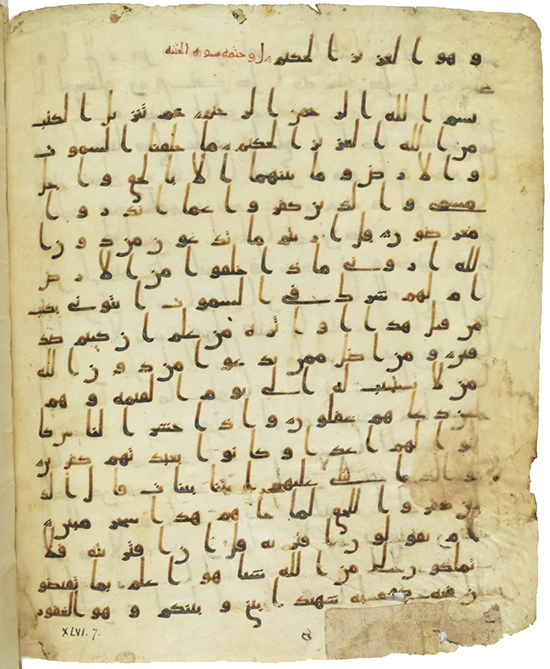 و هو العزيز الحكيم سوره الجثيه
بسم الله الرحمن الرحيم حم تنزيل الكتب
من الله العزيز الحكيم ما خلقنا السموت
و الارض و ما بينهما الا بالحق و اجل
مسمى و الذين كفروا عما انذروا
معرضون قل اريتم ما تدعون من دون ا
لله اروني ماذا خلقوا من الارض
ام لهم شرك في السموت ايتوني بكتب
من قبل هذا او اثرة من علم ان كنتم صد
قين و من اضل ممن يدعوا من دون الله
من لا يستجيب له الى يوم القيمة و هم
عن دعاهم غفلون و اذا حشر الناس كا
نوا لهم اعدا و كانوا بعبدتهم كفرين
و اذا تتلى عليهم ايتنا بينات قال الذ
ين كفروا للحق لما جاهم هذا سحر مبين
ام يقولون افتريه قل ان افتريته فلا
تملكون لي من الله شيا هو اعلم بما تفيضو
ن فيه كفى به شهيدا بيني و بينكم و هو الغفور
XLVI. 7.
8